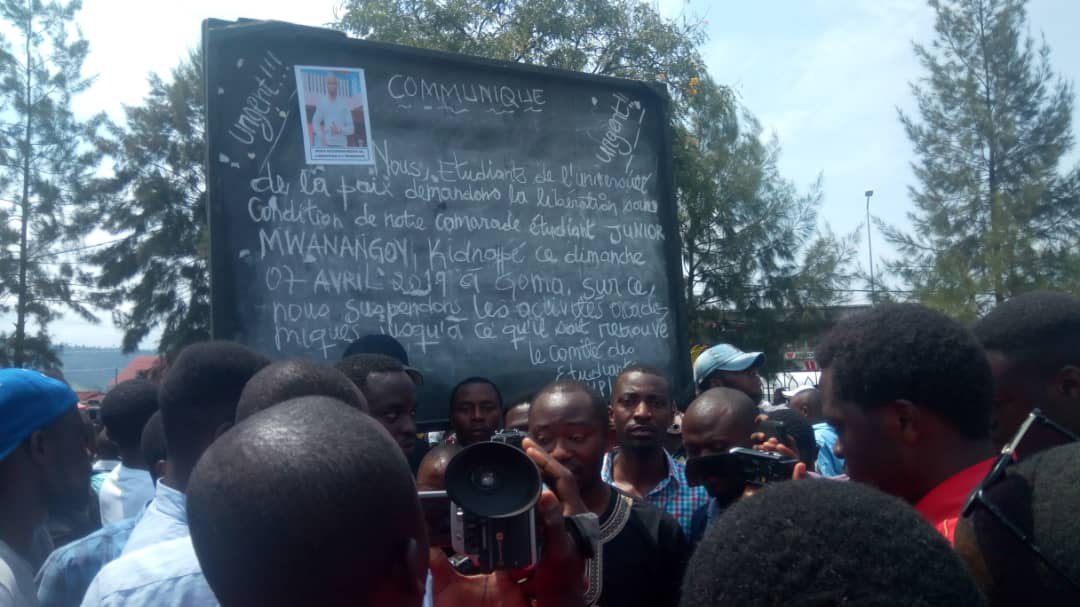 Urgent!!!
COMMUNIQUE
Urgent!
Nous, Etudiants de l'université
de la paix demandons la libération sans
condition de notre camarade étudiant JUNIOR
MWANANGOY, Kidnappé ce dimanche
07 AVRIL 2019 à Goma, sur ce,
nous suspendons les activités acadé-
miques jusqu'à ce qu'il soit retrouvé
le comité des
étudiants